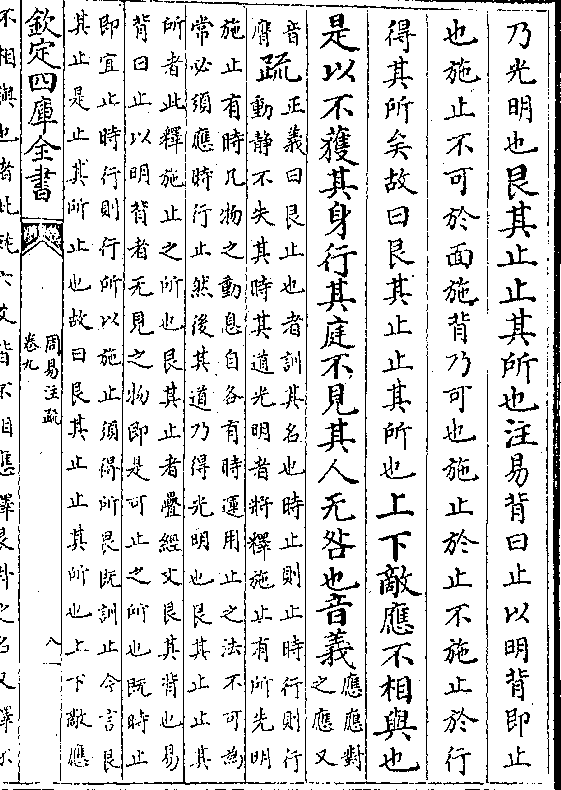 乃光明也艮其止止其所也注易背曰止以明背即止
也施止不可於面施背乃可也施止於止不施止於行
得其所矣故曰艮其止止其所也上下敵應不相與也
是以不獲其身行其庭不見其人无咎也音義應應對
之應又
音
膺
疏正義曰艮止也者訓其名也時止則止時行則行
動静不失其時其道光明者將釋施止有所光明
施止有時凡物之動息自各有時運用止之法不可為
常必須應時行止然後其道乃得光明也艮其止止其
所者此釋施止之所也艮其止者疊經文艮其背也易
背曰止以明背者无見之物即是可止之所也既時止
即宜止時行則行所以施止須得所艮既訓止今言艮
其止是止其所止也故曰艮其止止其所也上下敵應
欽定四庫全書
周易注疏
卷九
八
不相與也者此就六爻皆不相應釋艮卦之名又釋不